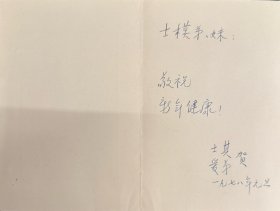 士模弟、妹：
敬祝
新年健康！
士其
爱弟 贺
一九七八年元旦